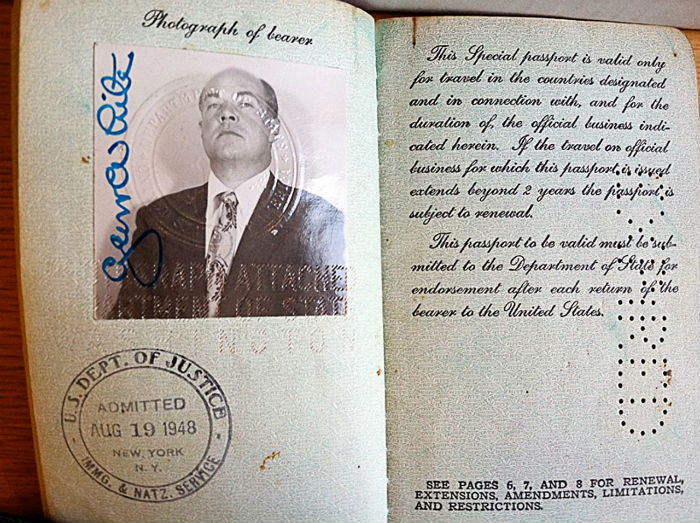 Photograph of bearer
PHOTOGRAPH ATTACHED
DEPARTMENT OF STATE
WASHINGTON
U.S. DEPT. OF JUSTICE
ADMITTED
AUG 19 1948
NEW YORK
N.Y.
IMMG. & NATZ. SERVICE
This Special passport is valid only
for travel in the countries designated
and in connection with, and for the
duration of, the official business indi-
cated herein. If the travel on official
business for which this passport is issued
extends beyond 2 years the passport is
subject to renewal.
This passport to be valid must be sub-
mitted to the Department of State for
endorsement after each return of the
bearer to the United States.
SEE PAGES 6, 7, AND 8 FOR RENEWAL,
EXTENSIONS, AMENDMENTS, LIMITATIONS,
AND RESTRICTIONS.